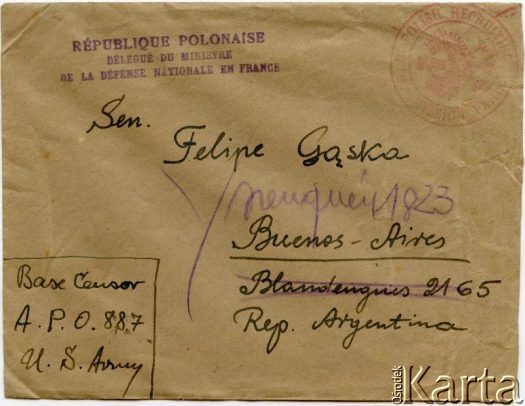 RÉPUBLIQUE POLONAISE
DÉLÉGUÉ DU MINISTRE
DE LA DÉFENSE NATIONALE EN FRANCE
POLISH RECRUITING
MISSION
Sen.
Felipe Gąska
Neuquén 1823
Buenos-Aires
Blandengues 2165
Rep. Argentina
Base Censor
A.P.O. 887
U.S. Army
Ośrodek
Karta